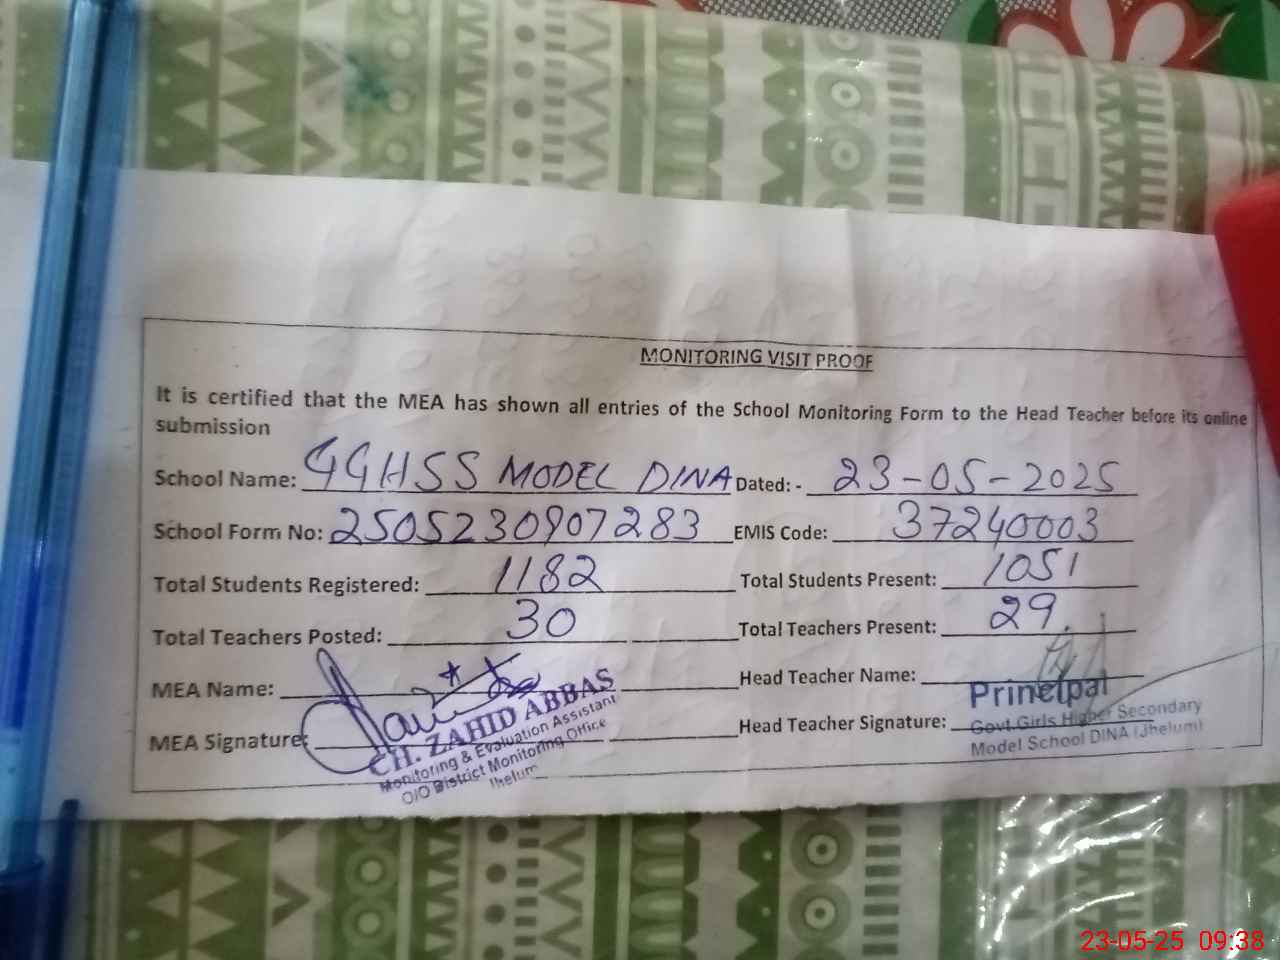 MONITORING VISIT PROOF
It is certified that the MEA has shown all entries of the School Monitoring Form to the Head Teacher before its online
submission
School Name: GGHSS MODEL DINA Dated: - 23-05-2025
School Form No: 2505230907283 EMIS Code: 37240003
Total Students Registered: 1182 Total Students Present: 1051
Total Teachers Posted: 30 Total Teachers Present: 29.
MEA Name: Head Teacher Name:
MEA Signature: Head Teacher Signature:
CH. ZAHID ABBAS
Monitoring & Evaluation Assistant
O/O District Monitoring Office
Jhelum
Principal
Govt Girls Higher Secondary
Model School DINA (Jhelum)
23-05-25 09:38